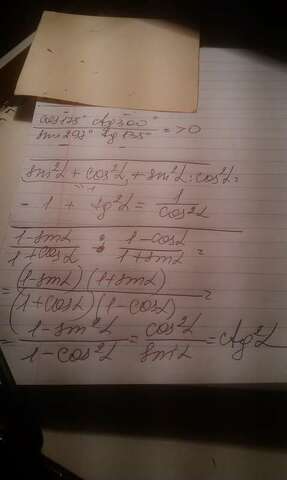 cos175° ctg300°
sin297° tg135° = >0
sin²α + cos²α + sin²α : cos²α =
= 1 + tg²α = 1/cos²α
(1-sinα)/(1+cosα) : (1-cosα)/(1+sinα) =
= (1-sinα)(1+sinα)/(1+cosα)(1-cosα) =
= (1-sin²α)/(1-cos²α) = cos²α/sin²α = ctg²α